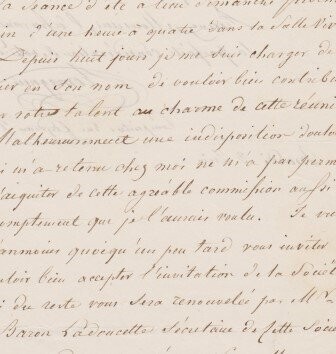 séance d'été a lieu dimanche
in d'une heure à quatre dans la Salle
Depuis huit jours je me suis chargé de
en son nom de vouloir bien contrib
votre talent au charme de cette réun
Malheureusement une indisposition doulo
i m'a retenu chez moi ne m'a pas perm
'acquiter de cette agréable commission aussi
omptement que je l'aurais voulu. Je v
anmoins quoiqu'un peu tard vous inviter
uloir bien accepter l'invitation de la Sociét
i du reste vous sera renouvelée par M. L
Baron Ladoucette Sécrétaire de cette Socié